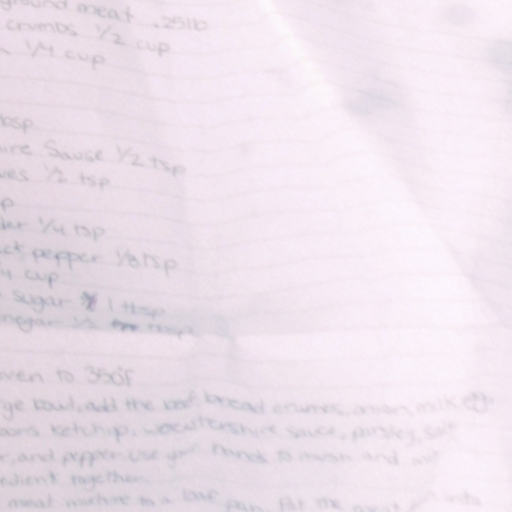 ground meat .25lb
crumbs 1/2 cup
1/4 cup
tbsp
ire Sause 1/2 tsp
ves 1/2 tsp
p
der 1/4 tsp
ck pepper 1/8 tsp
4 cup
sugar 1 tbsp
negar 1/2 tbsp
oven to 350°f
ge bowl, add the beef bread crumbs, onion, milk egg
oons ketchup, worcestershire sauce, parsley, salt
r, and pepper. use your hands to mash and mix
redient together.
meat mixture to a loaf pan. Pat the meat into